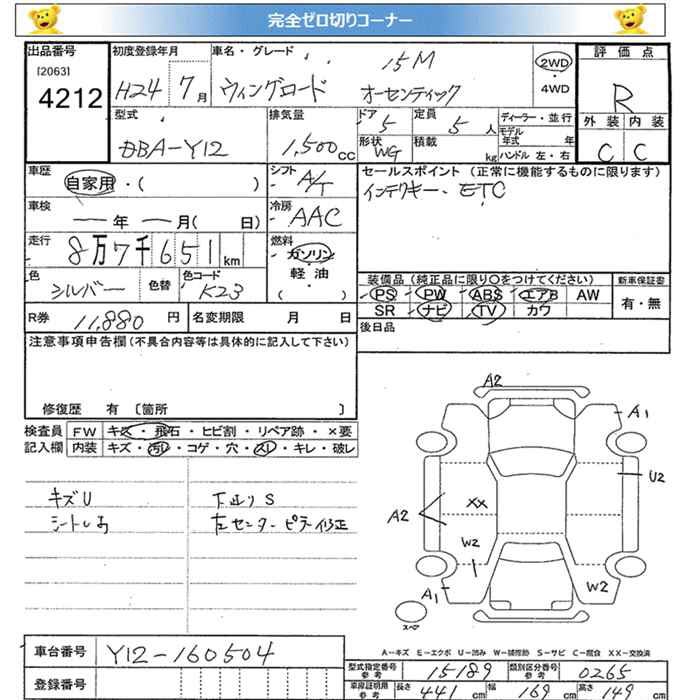 完全ゼロ切りコーナー
出品番号 初度登録年月 車名・グレード 15M 2WD 評価点
[2063]
4212 H24 7月 ウィングロード オーセンティック 4WD R
型式 排気量 ドア 定員 ディーラー・並行 外装 内装
DBA-Y12 1,500cc 5 5人 モデル年式 年 C C
形状 WG 積載 kg ハンドル 左・右
車歴 自家用・( ) シフト A/T セールスポイント (正常に機能するものに限ります)
インテリキー、ETC
車検 ー年 ー月( 日) 冷房 AAC
走行 8万7千651km 燃料 ガソリン
軽・油
( )
色 シルバー 色替 色コード K23 装備品 (純正品に限り○をつけてください) 新車保証書
PS PW ABS エアB AW 有・無
R券 11,880円 名変期限 月 日 SR ナビ TV カワ
注意事項申告欄(不具合内容等は具体的に記入して下さい) 後日品
修復歴 有 〔箇所 〕
検査員 FW キズ・飛石・ヒビ割・リペア跡・×要
記入欄 内装 キズ・汚レ・コゲ・穴・スレ・キレ・破レ
キズU 下廻りS
左センターピラー修正
A2
A1
U2
A2
XX
W2
W2
A1
スペア
A-キズ E-エクボ U-凹み W-補修跡 S-サビ C-腐食 XX-交換済
車台番号 Y12-160504
型式指定番号 参考 15189 類別区分番号 参考 0265
登録番号 車庫証明用 参考 長さ 441cm 幅 169cm 高さ 149cm